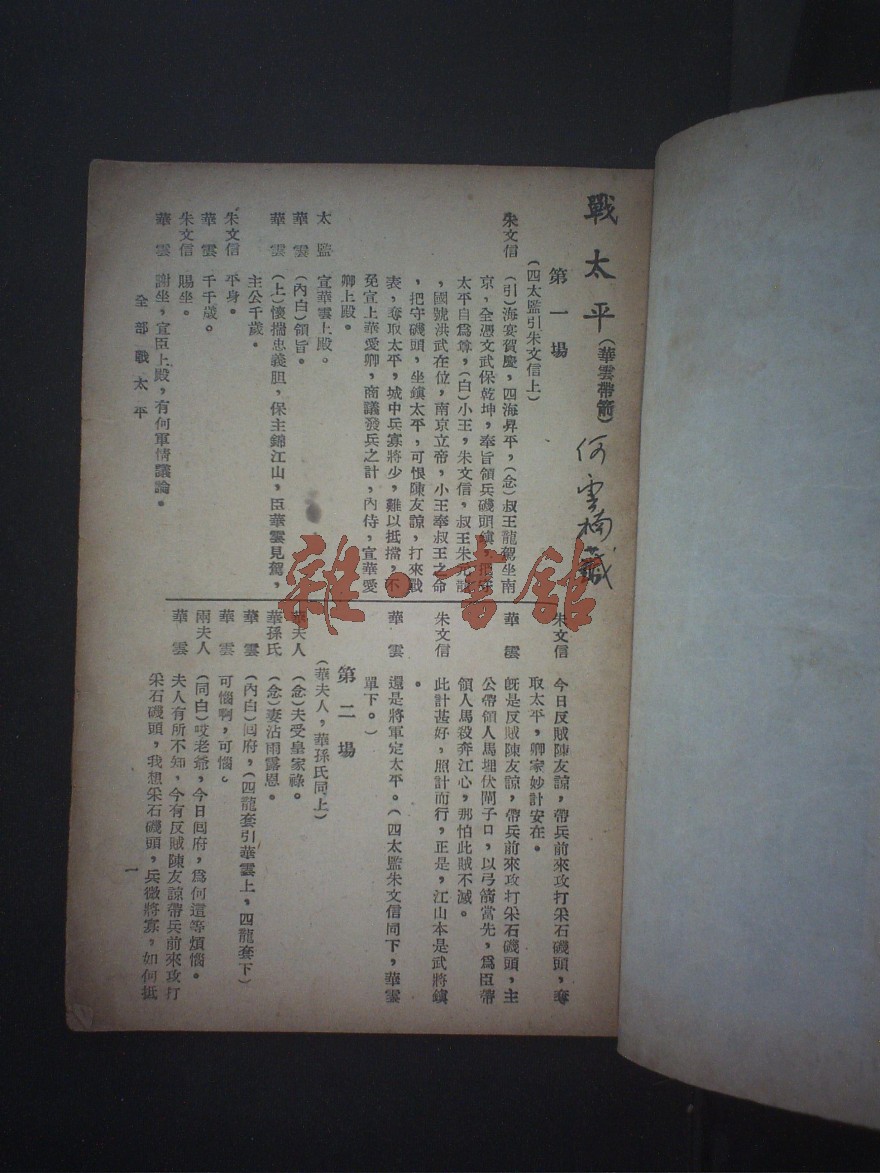 戰太平(華雲帶箭)
何雲楠籤
第一場
(四太監引朱文信上)
朱文信 (引)海宴賀慶,四海昇平,(念)叔王龍駕坐南
京,全憑文武保乾坤,奉旨領兵磯頭鎮,把守
太平自爲尊,(白)小王,朱文信,叔王朱元龍
,國號洪武在位,南京立帝,小王奉叔王之命
,把守磯頭,坐鎮太平,可恨陳友諒,打來戰
表,奪取太平,城中兵寡將少,難以抵擋,不
免宣上華愛卿,商議發兵之計,內侍,宣華愛
卿上殿。
太監 宣華雲上殿。
華雲 (內白)領旨。
華雲 (上)懷揣忠義胆,保主錦江山,臣華雲見駕,
主公千歲。
朱文信 平身。
華雲 千千歲。
朱文信 賜坐。
華雲 謝坐,宣臣上殿,有何軍情議論。
朱文信 今日反賊陳友諒,帶兵前來攻打采石磯頭,奪
取太平,卿家妙計安在。
華雲 旣是反賊陳友諒,帶兵前來攻打采石磯頭,主
公帶領人馬埋伏閘子口,以弓箭當先,爲臣帶
領人馬殺奔江心,那怕此賊不滅。
朱文信 此計甚好,照計而行,正是,江山本是武將鎮
。
華雲 還是將軍定太平。(四太監朱文信同下,華雲
單下。)
第二場
(華夫人,華孫氏同上)
華夫人 (念)夫受皇家祿。
華孫氏 (念)妻沾雨露恩。
華雲 (內白)囘府,(四龍套引華雲上,四龍套下)
華雲 可惱啊,可惱。
兩夫人 (同白)哎老爺,今日囘府,爲何這等煩惱。
華雲 夫人有所不知,今有反賊陳友諒帶兵前來攻打
采石磯頭,我想采石磯頭,兵微將寡,如何抵
全部戰太平
一
雜·書館